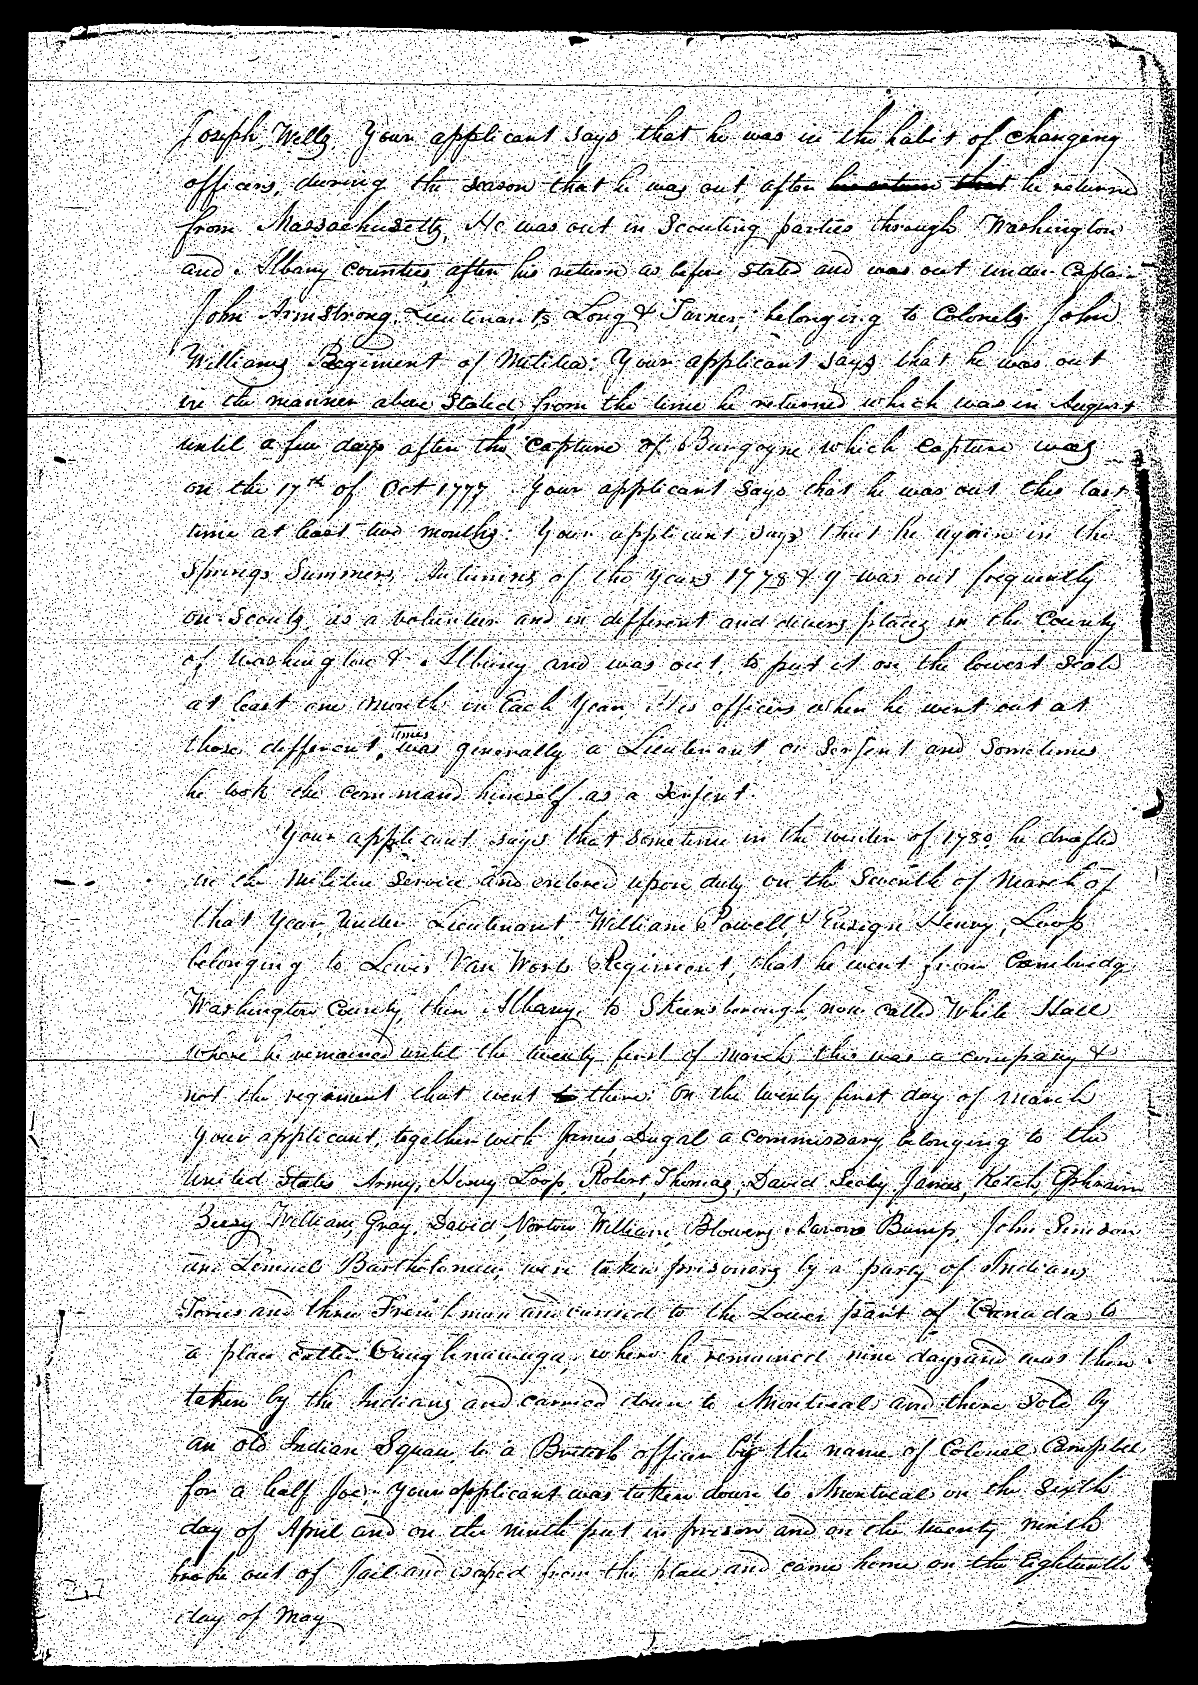 Joseph, Wells Your applicant says that he was in the habit of changeng
officers, during the season that he was out, after his return that he returned
from Massachusetts, He was out in Scouting parties through Washington
and Albany counties, after his return as before stated and was out under Captain
John Armstrong, Lieutenants Long & Turner, belonging to Colonels John
Williams Regiment of Militia: Your applicant says that he was out
in the manner above Stated from the time he returned which was in August
until a few days after the capture of Burgoyne which capture was
on the 17th of Oct 1777 Your applicant Says that he was out this last
time at least two months: Your applicant says that he again in the
Springs Summers, Autumns of the Years 1778 & 9 was out frequently
on Scouts, as a volunteer and in different and divers places in the County
of Washington & Albany and was out, to put it on the lowest Scale
at least one month in Each Year, His officers when he went out at
those different, times was generally a Lieutenant or Serjent and Sometimes
he took the command himself as a Serjent.
Your applicant says that sometime in the winter of 1780 he drafted
in the Militia Service and entered upon duty on the Seventh of March of
that Year, under Lieutenant William Powell, & Ensign Henry, Loop
belonging to Lewis Van Worts Regiment, that he went from Cambridg
Washington County, then Albany, to Skeensborough now called White Hall
where he remained until the twenty first of March, this was a company &
not the regiment that went to there: On the twenty first day of March
Your applicant, together with James, Dugal a commissary belonging to the
United States Army, Henry Loop, Robert, Thomas, David Sealy, James, Ketch, Ephraim
William, Gray, David, Norton William, Blowers Aaron Bump, John Simson
and Lemuel Bartholomew, were taken prisoners by a party of Indians
Tories and three Frenchman and carried to the Lower part of Canada to
a place called where he remained nine days and was then
taken by the Indians and carried down to Montreal and there Sold by
an old Indian Squaw, to a British officer by the name of Colonel Campbel
for a half Joe, Your applicant was taken down to Montreal on the Sixth
day of April and on the ninth put in prison and on the twenty ninth
broke out of Jail and escaped from the place and came home on the Eighteenth
day of May